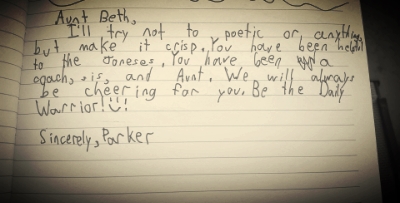 Aunt Beth,
I'll try not to poetic or anything,
but make it crisp. You have been helpful
to the Joneses. You have been a
coach, sis, and Aunt. We will always
be cheering for you. Be the Daily
Warrior!!!
Sincerely, Parker